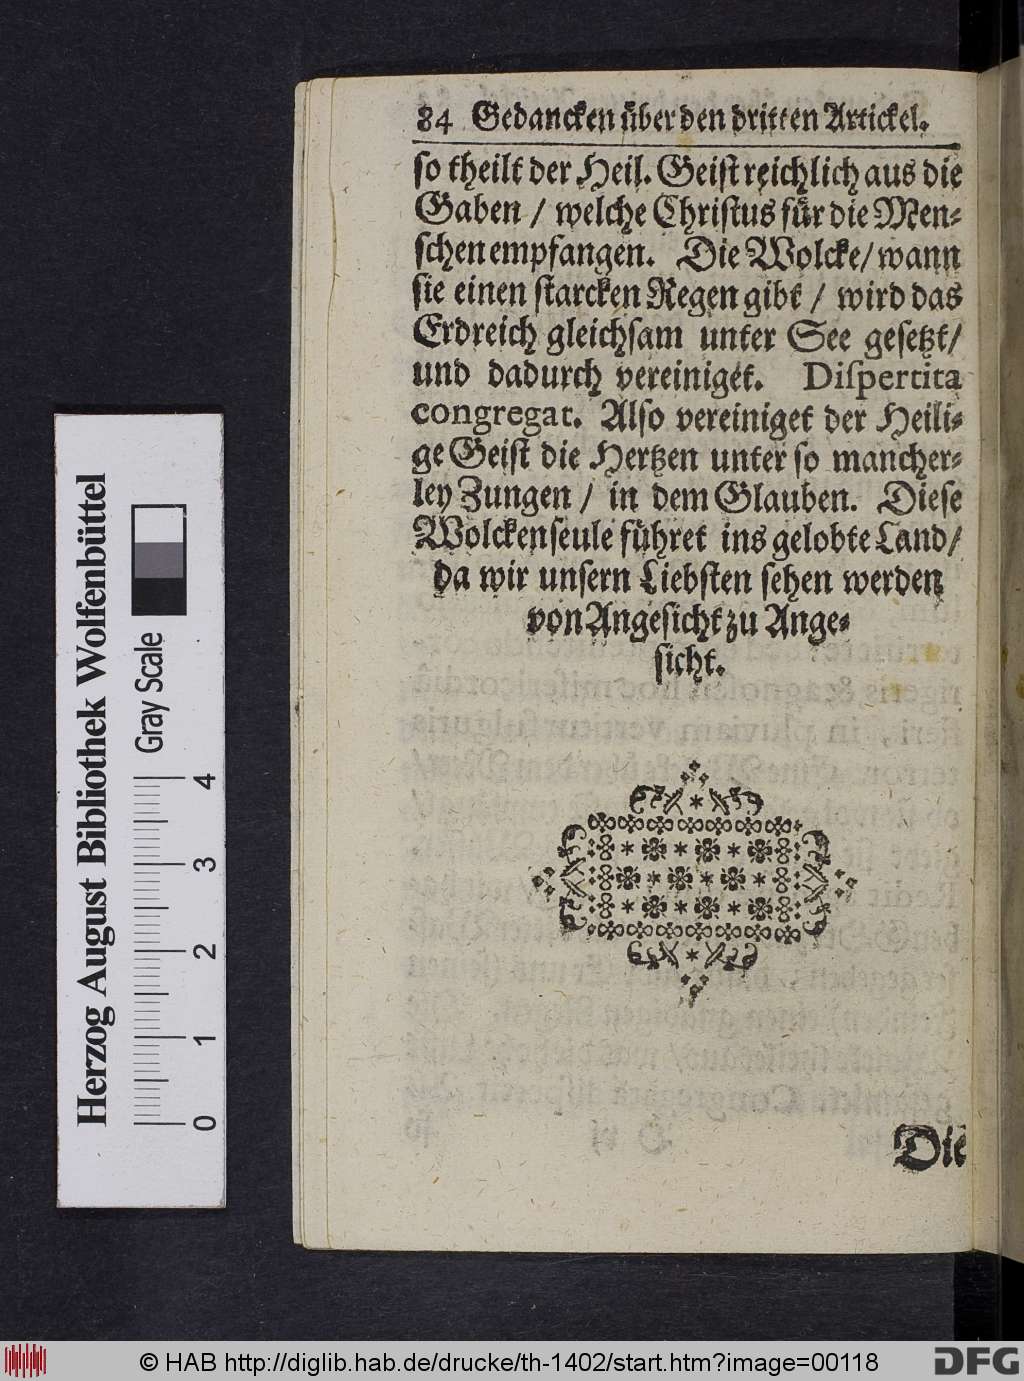 84 Gedancken über den dritten Artickel.
so theilt der Heil. Geist reichlich aus die
Gaben / welche Christus für die Men-
schen empfangen. Die Wolcke / wann
sie einen starcken Regen gibt / wird das
Erdreich gleichsam unter See gesetzt /
und dadurch vereiniget. Dispertita
congregat. Also vereiniget der Heili-
ge Geist die Hertzen unter so mancher-
ley Zungen / in dem Glauben. Diese
Wolckenseule führet ins gelobte Land /
da wir unsern Liebsten sehen werden
von Angesicht zu Ange-
sicht.
Die
Herzog August Bibliothek Wolfenbüttel
Gray Scale
0 1 2 3 4
© HAB http://diglib.hab.de/drucke/th-1402/start.htm?image=00118
DFG